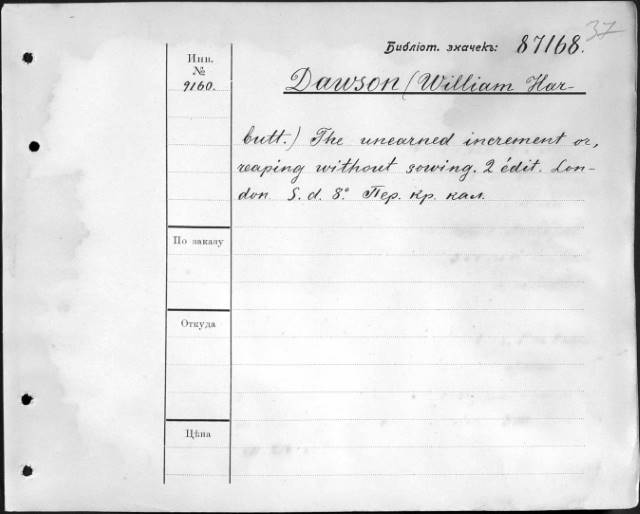 37
Библіот. значекъ: 87168.
Инв.
№
9160.
Dawson (William Har-
butt.) The unearned increment or,
reaping without sowing. 2 édit. Lon-
don S. d. 8° Пер. кр. кал.
По заказу
Откуда
Цѣна